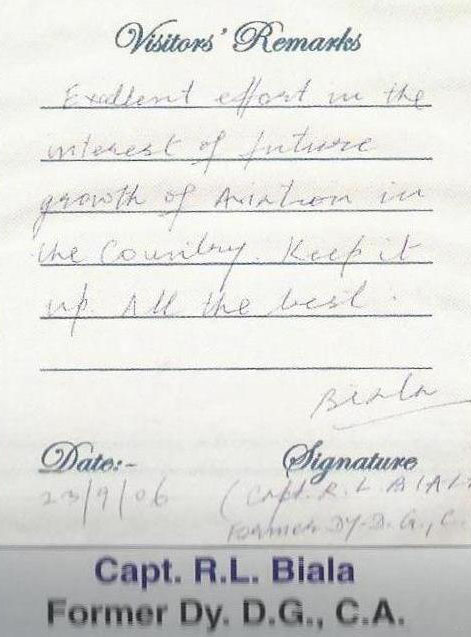 Visitors' Remarks
Excellent effort in the
interest of future
growth of Aviation in
the Country. Keep it
up. All the best.
Biala
Date:-
Signature
23/9/06
(Capt. R. L. BIAL
Former DY. D. G., C.
Capt. R.L. Biala
Former Dy. D.G., C.A.